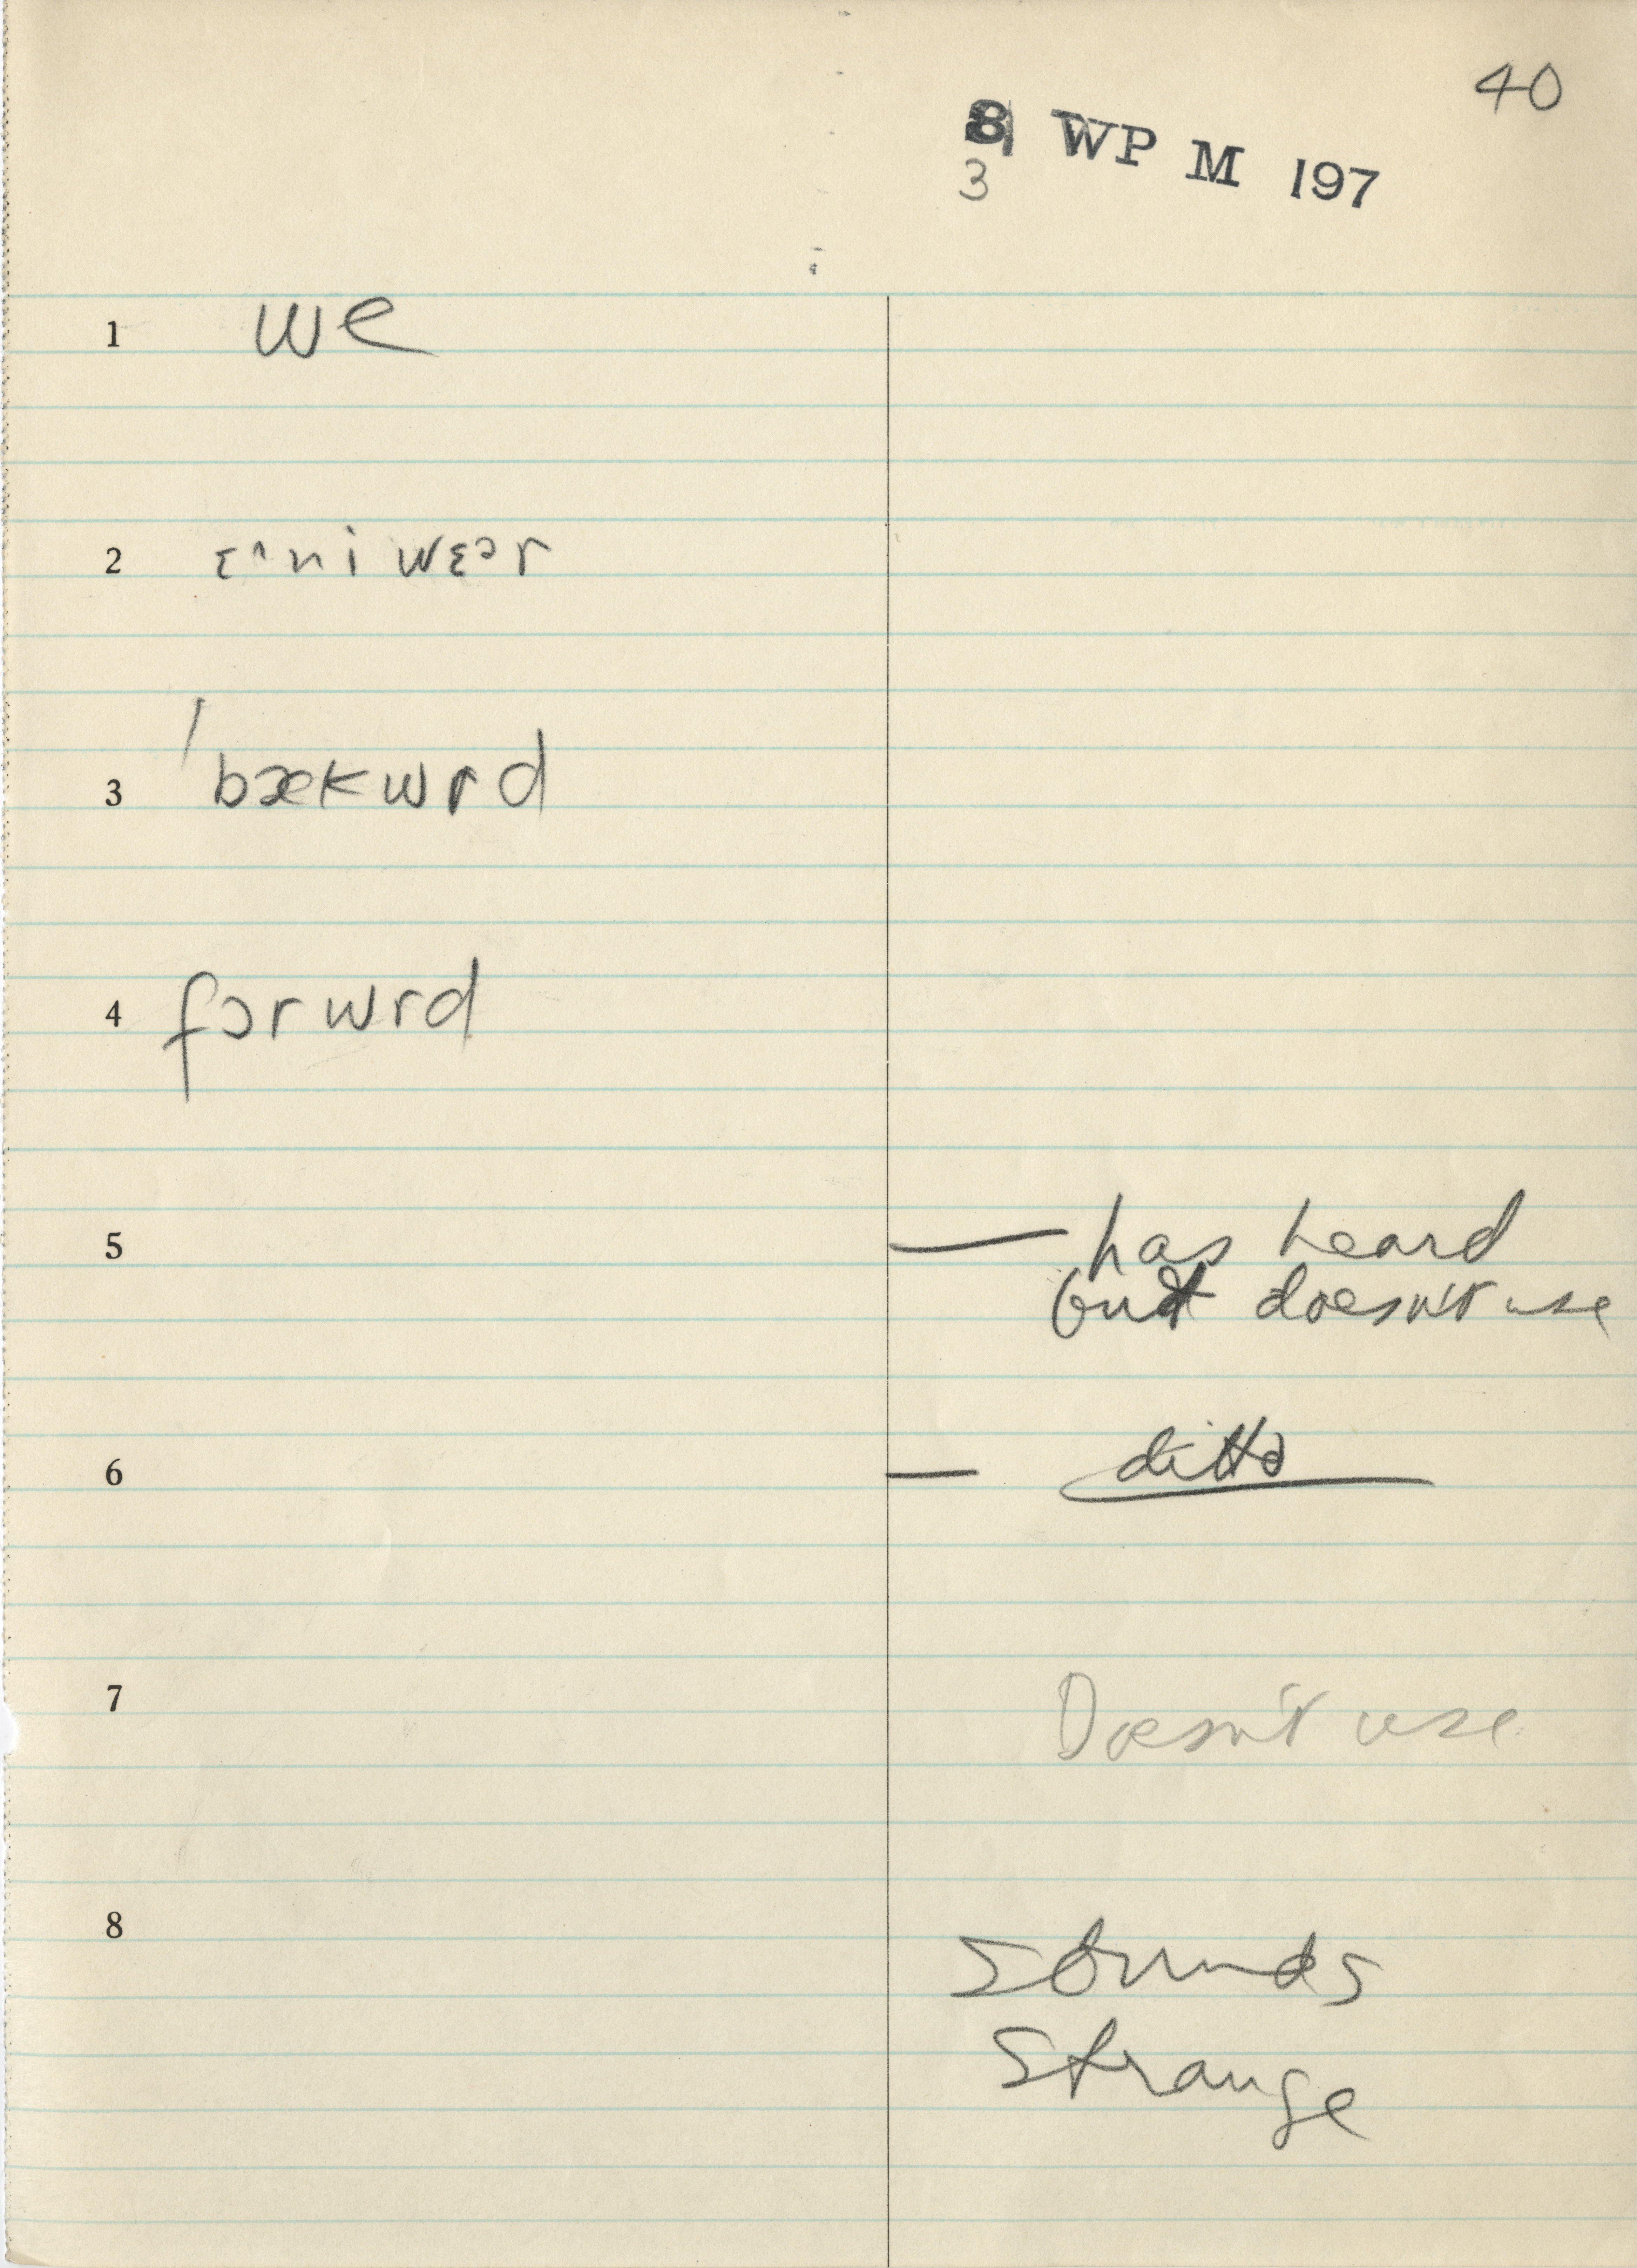 40
8 WP M 197
3
1 we
2 ɛ^ni wɛɔr
3 'bækwrd
4 fɔrwrd
5 — has heard
but doesn't use
6 — ditto
7 Doesn't use
8 Sounds
Strange